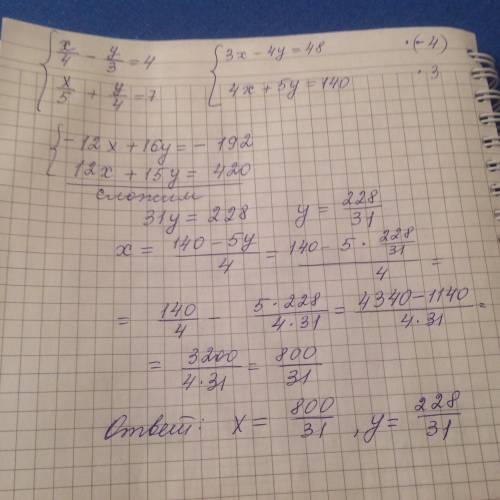 x/4 - y/3 = 4    3x - 4y = 48    ·(-4)
x/5 + y/4 = 7    4x + 5y = 140    · 3
-12x + 16y = - 192
12x + 15y = 420
сложим
31y = 228    y = 228/31
x = (140 - 5y)/4 = (140 - 5 · 228/31)/4 =
= 140/4 - (5·228)/(4·31) = (4340-1140)/(4·31) =
= 3200/(4·31) = 800/31
Ответ: x = 800/31, y = 228/31